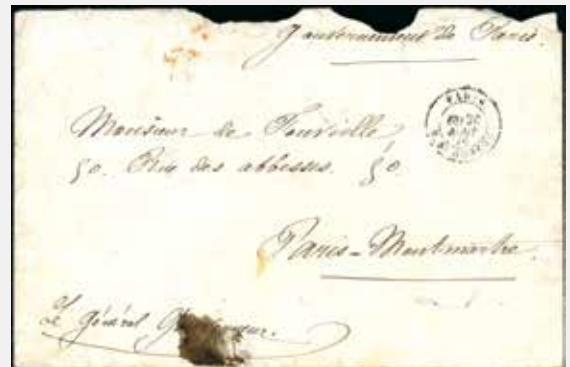 Gouvernement de Paris.
PARIS
Monsieur de Tourville
50. Rue des abbesses. 50
Paris-Montmartre.
Le Général Gouverneur.